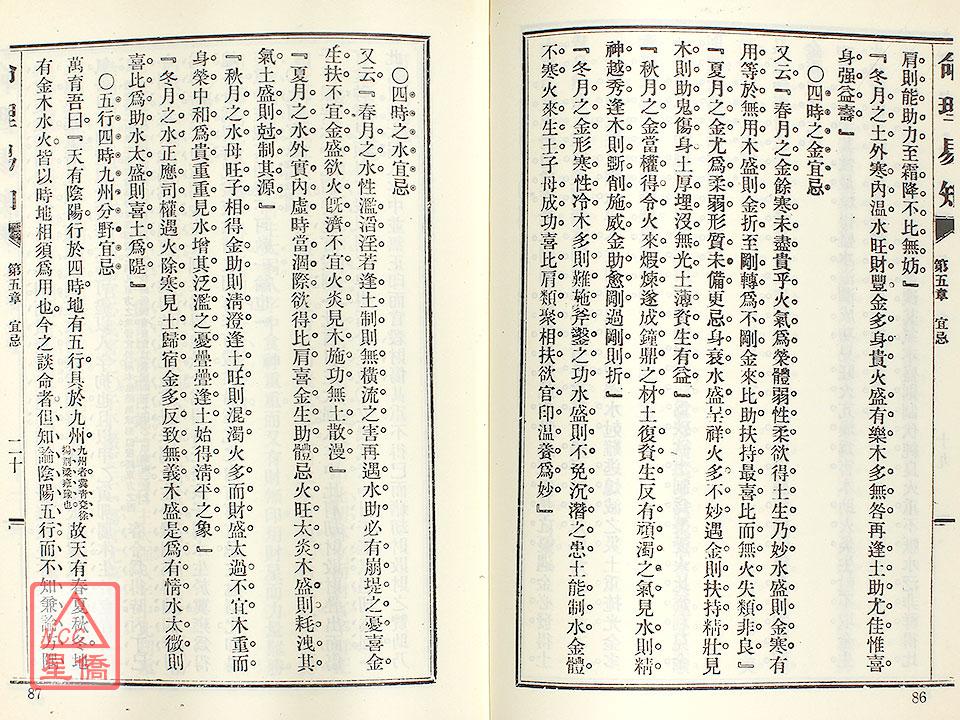 肩則能助力至霜降不比無妨』
『冬月之土外寒内温水旺財豐金多身貴火盛有樂木多無咎再逢土助尤佳惟喜
身强益壽』
〇四時之金宜忌
又云『春月之金餘寒未盡貴乎火氣爲榮體弱性柔欲得土生乃妙水盛則金寒有
用等於無用木盛則金折至剛轉爲不剛金來比助扶持最喜比而無火失類非良』
『夏月之金尤爲柔弱形質未備更忌身衰水盛呈祥火多不妙遇金則扶持精壯見
木則助鬼傷身土厚埋沒無光土薄資生有益』
『秋月之金當權得令火來煆煉遂成鐘鼎之材土復資生反有頑濁之氣見水則精
神越秀逢木則斲削施威金助愈剛過剛則折』
『冬月之金形寒性冷木多則難施斧鑿之功水盛則不免沉潛之患土能制水金體
不寒火來生土子母成功喜比肩類聚相扶欲官印温養爲妙』
命理易知
第五章
宜忌
86
〇四時之水宜忌
又云『春月之水性濫滔淫若逢土制則無橫流之害再遇水助必有崩堤之憂喜金
生扶不宜金盛欲火旣濟不宜火炎見木施功無土散漫』
『夏月之水外實内虛時當涸際欲得比肩喜金生助體忌火旺太炎木盛則耗洩其
氣土盛則尅制其源』
『秋月之水母旺子相得金助則淸澄逢土旺則混濁火多而財盛太過不宜木重而
身榮中和爲貴重重見水增其泛濫之憂疊疊逢土始得淸平之象』
『冬月之水正應司權遇火除寒見土歸宿金多反致無義木盛是爲有情水太微則
喜比爲助水太盛則喜土爲隄』
〇五行四時九州分野宜忌
萬育吾曰『天有陰陽行於四時地有五行具於九州九州者冀青兗徐揚荊梁雍豫也故天有春夏秋冬地
有金木水火皆以時地相須爲用也今之談命者但知論陰陽五行而不知兼論方隅
第五章
宜忌
二十
87
N.C.C
星僑